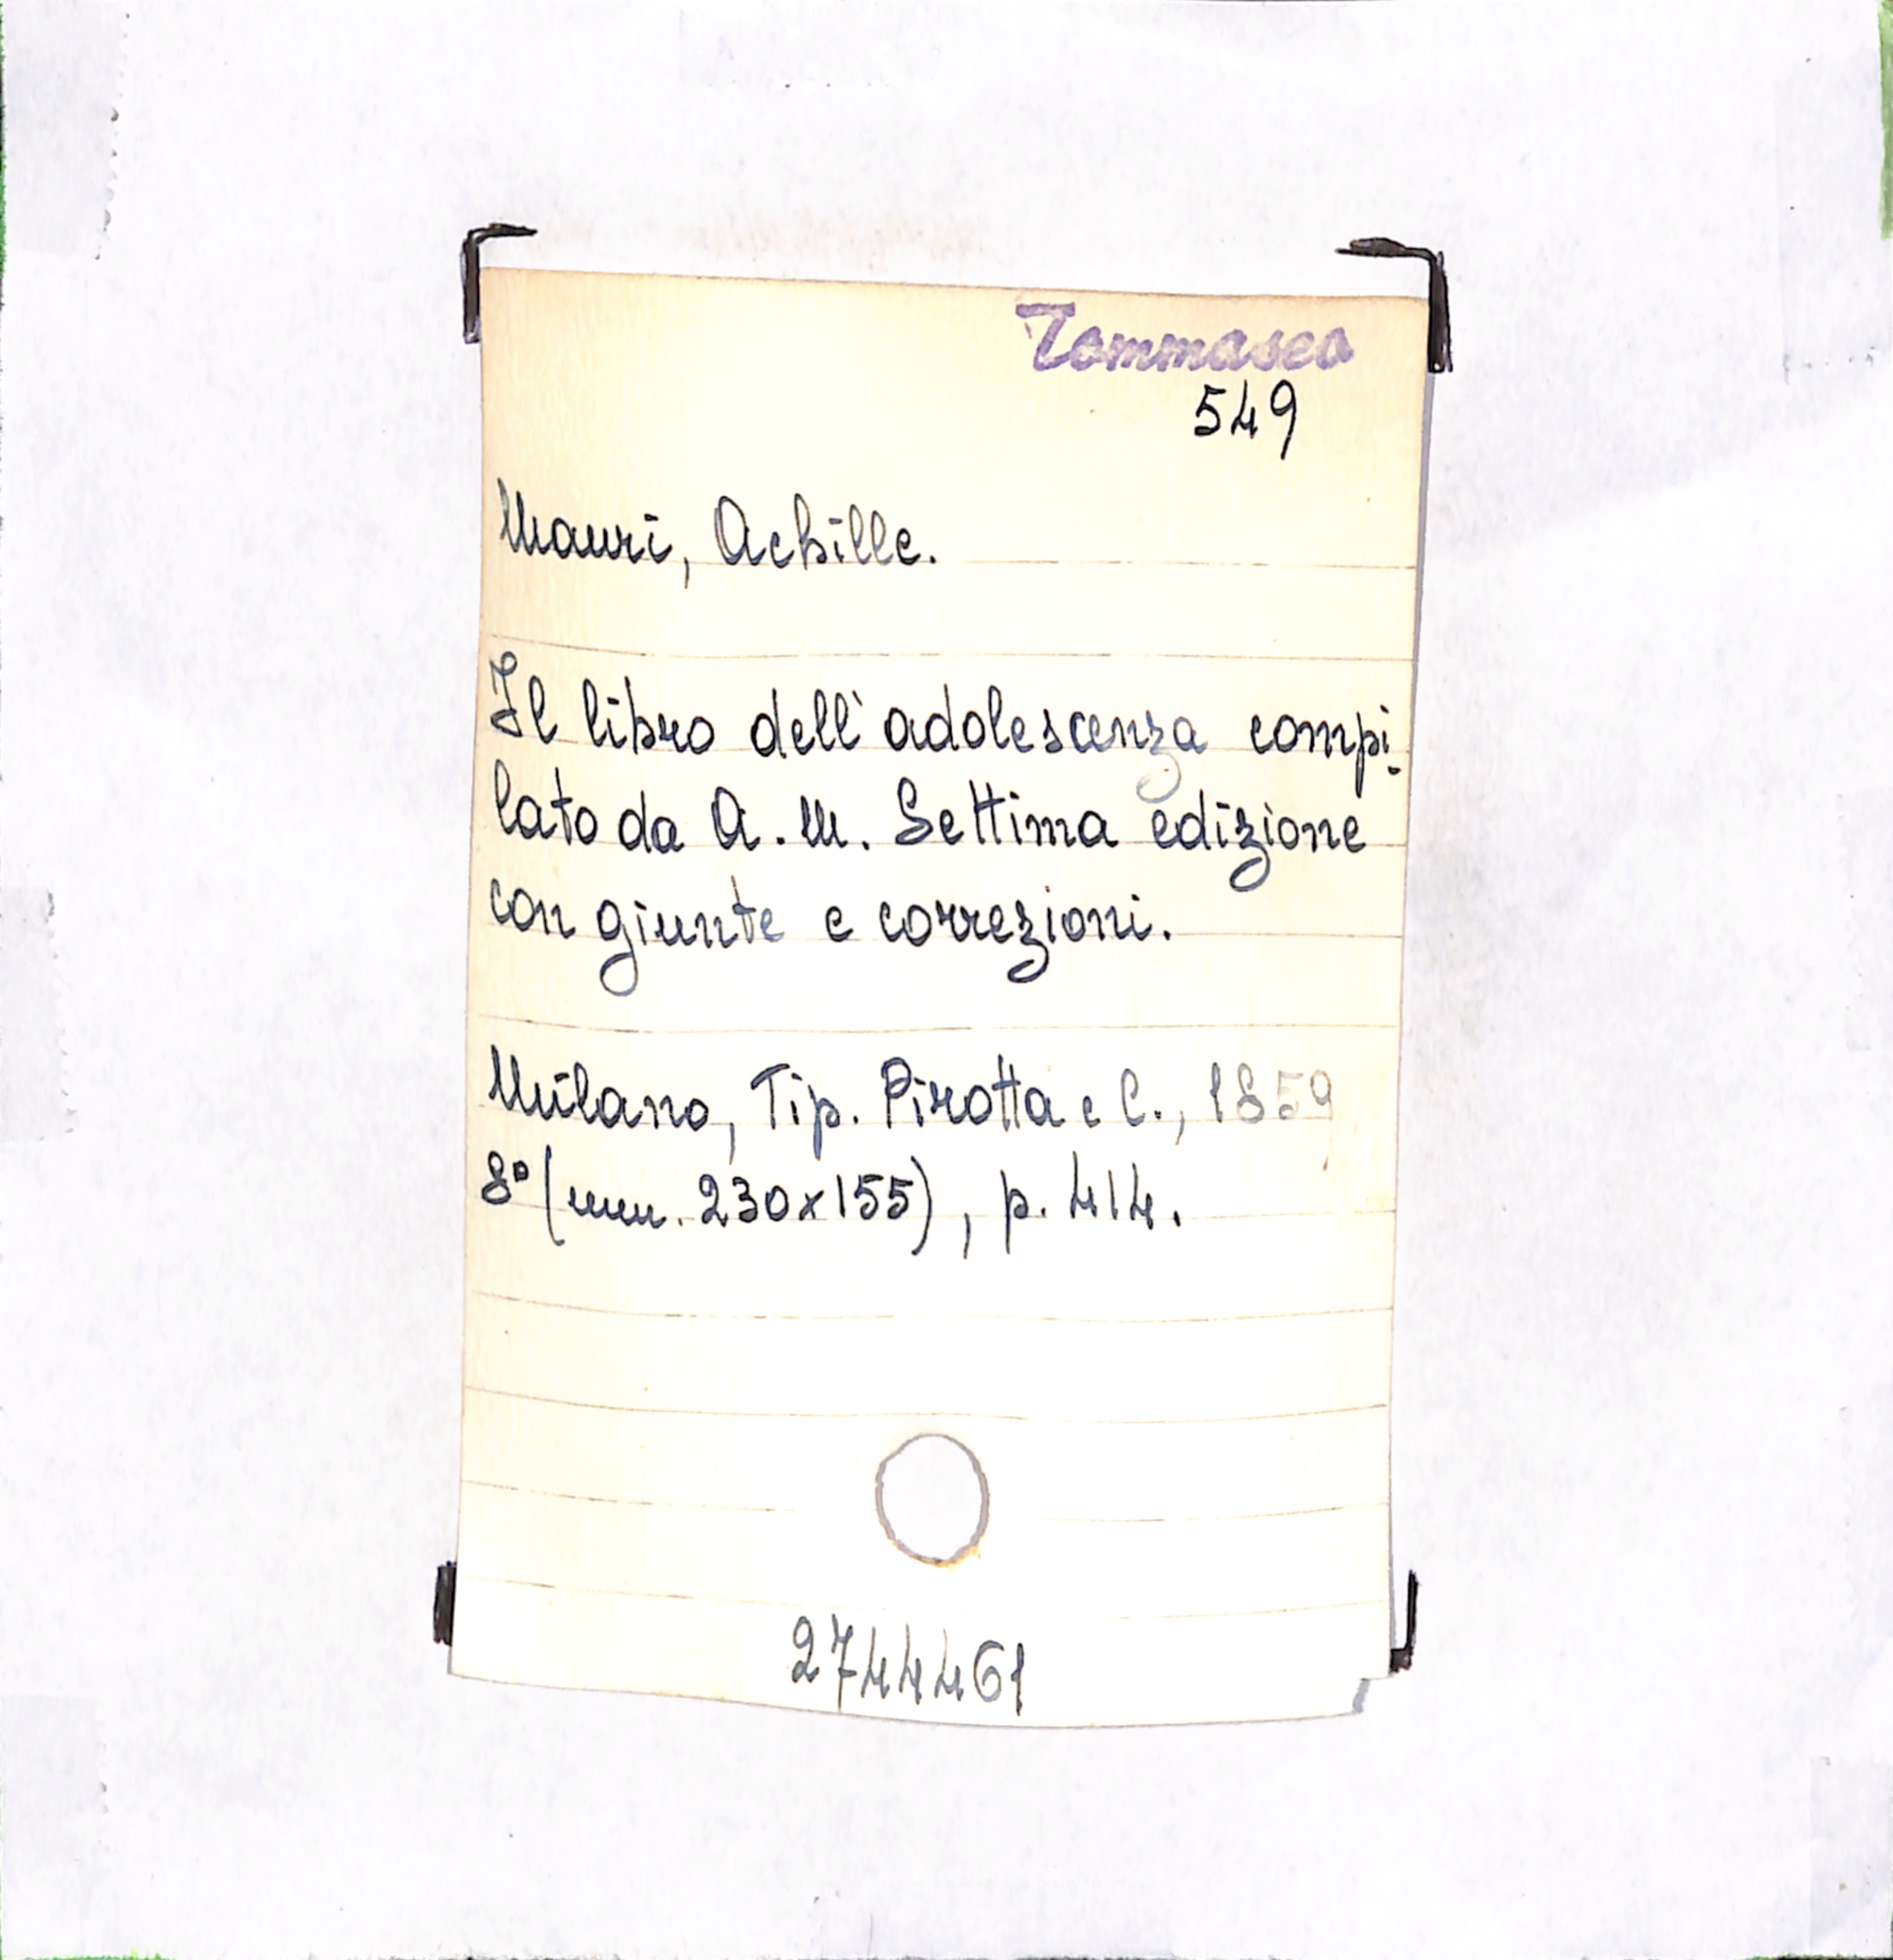 Tommaseo
549
Mauri, Achille.
Il libro dell'adolescenza compi-
lato da A. M. Settima edizione
con giunte e correzioni.
Milano, Tip. Pirotta e C., 1859
8° (mm. 230x155), p. 414.
2744461